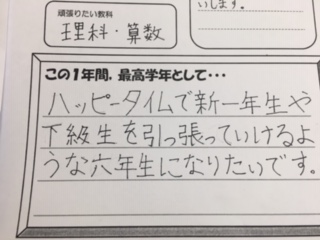 頑張りたい教科
理科・算数
いします。
この1年間，最高学年として・・・
ハッピータイムで新一年生や
下級生を引っ張っていけるよ
うな六年生になりたいです。